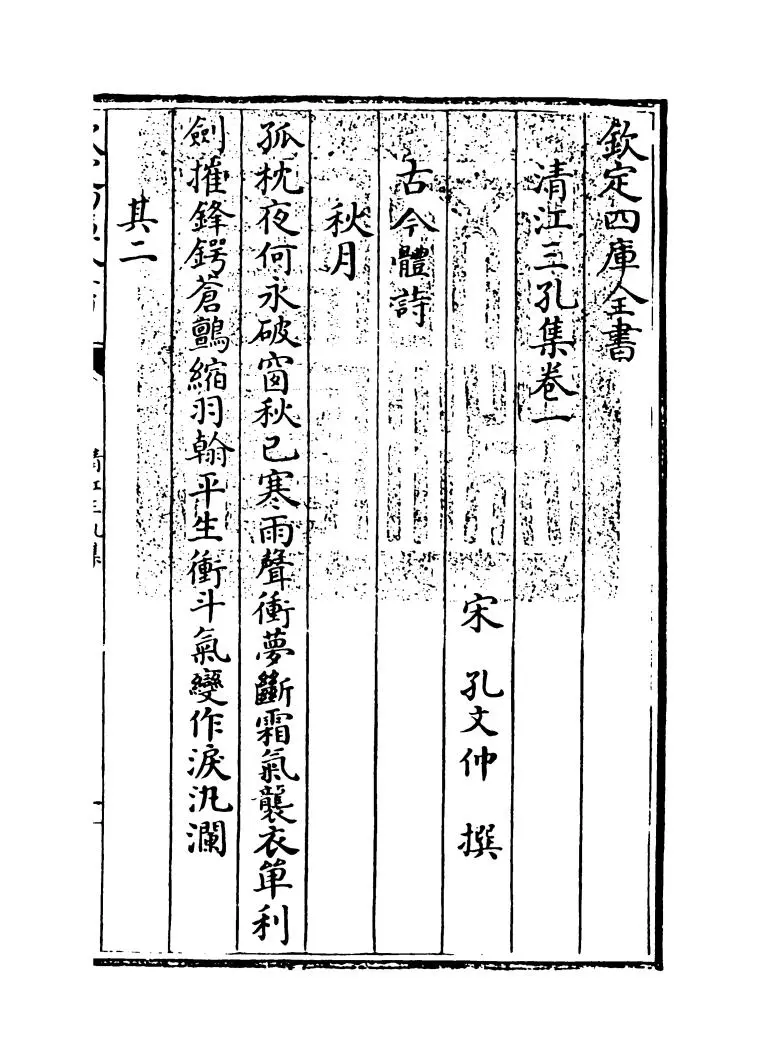 欽定四庫全書
清江三孔集卷一
宋 孔文仲 撰
古今體詩
秋月
孤枕夜何永破窗秋已寒雨聲衝夢斷霜氣襲衣單利
劍摧鋒鍔蒼鸇縮羽翰平生衝斗氣變作淚汍瀾
其二
清江三孔集